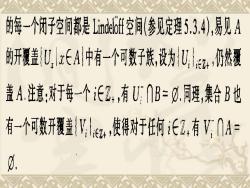 的每一个闭子空间都是 Lindeloff 空间(参见定理 5.3.4),易见 A
的开覆盖{Uₓ|x∈A}中有一个可数子族,设为{Uᵢ}ᵢ∈Z₊,仍然覆
盖 A.注意:对于每一个 i∈Z₊,有 Uᵢ⁻∩B=∅.同理,集合 B 也
有一个可数开覆盖{Vᵢ}ᵢ∈Z₊,使得对于任何 i∈Z₊有 Vᵢ⁻∩A=
∅.